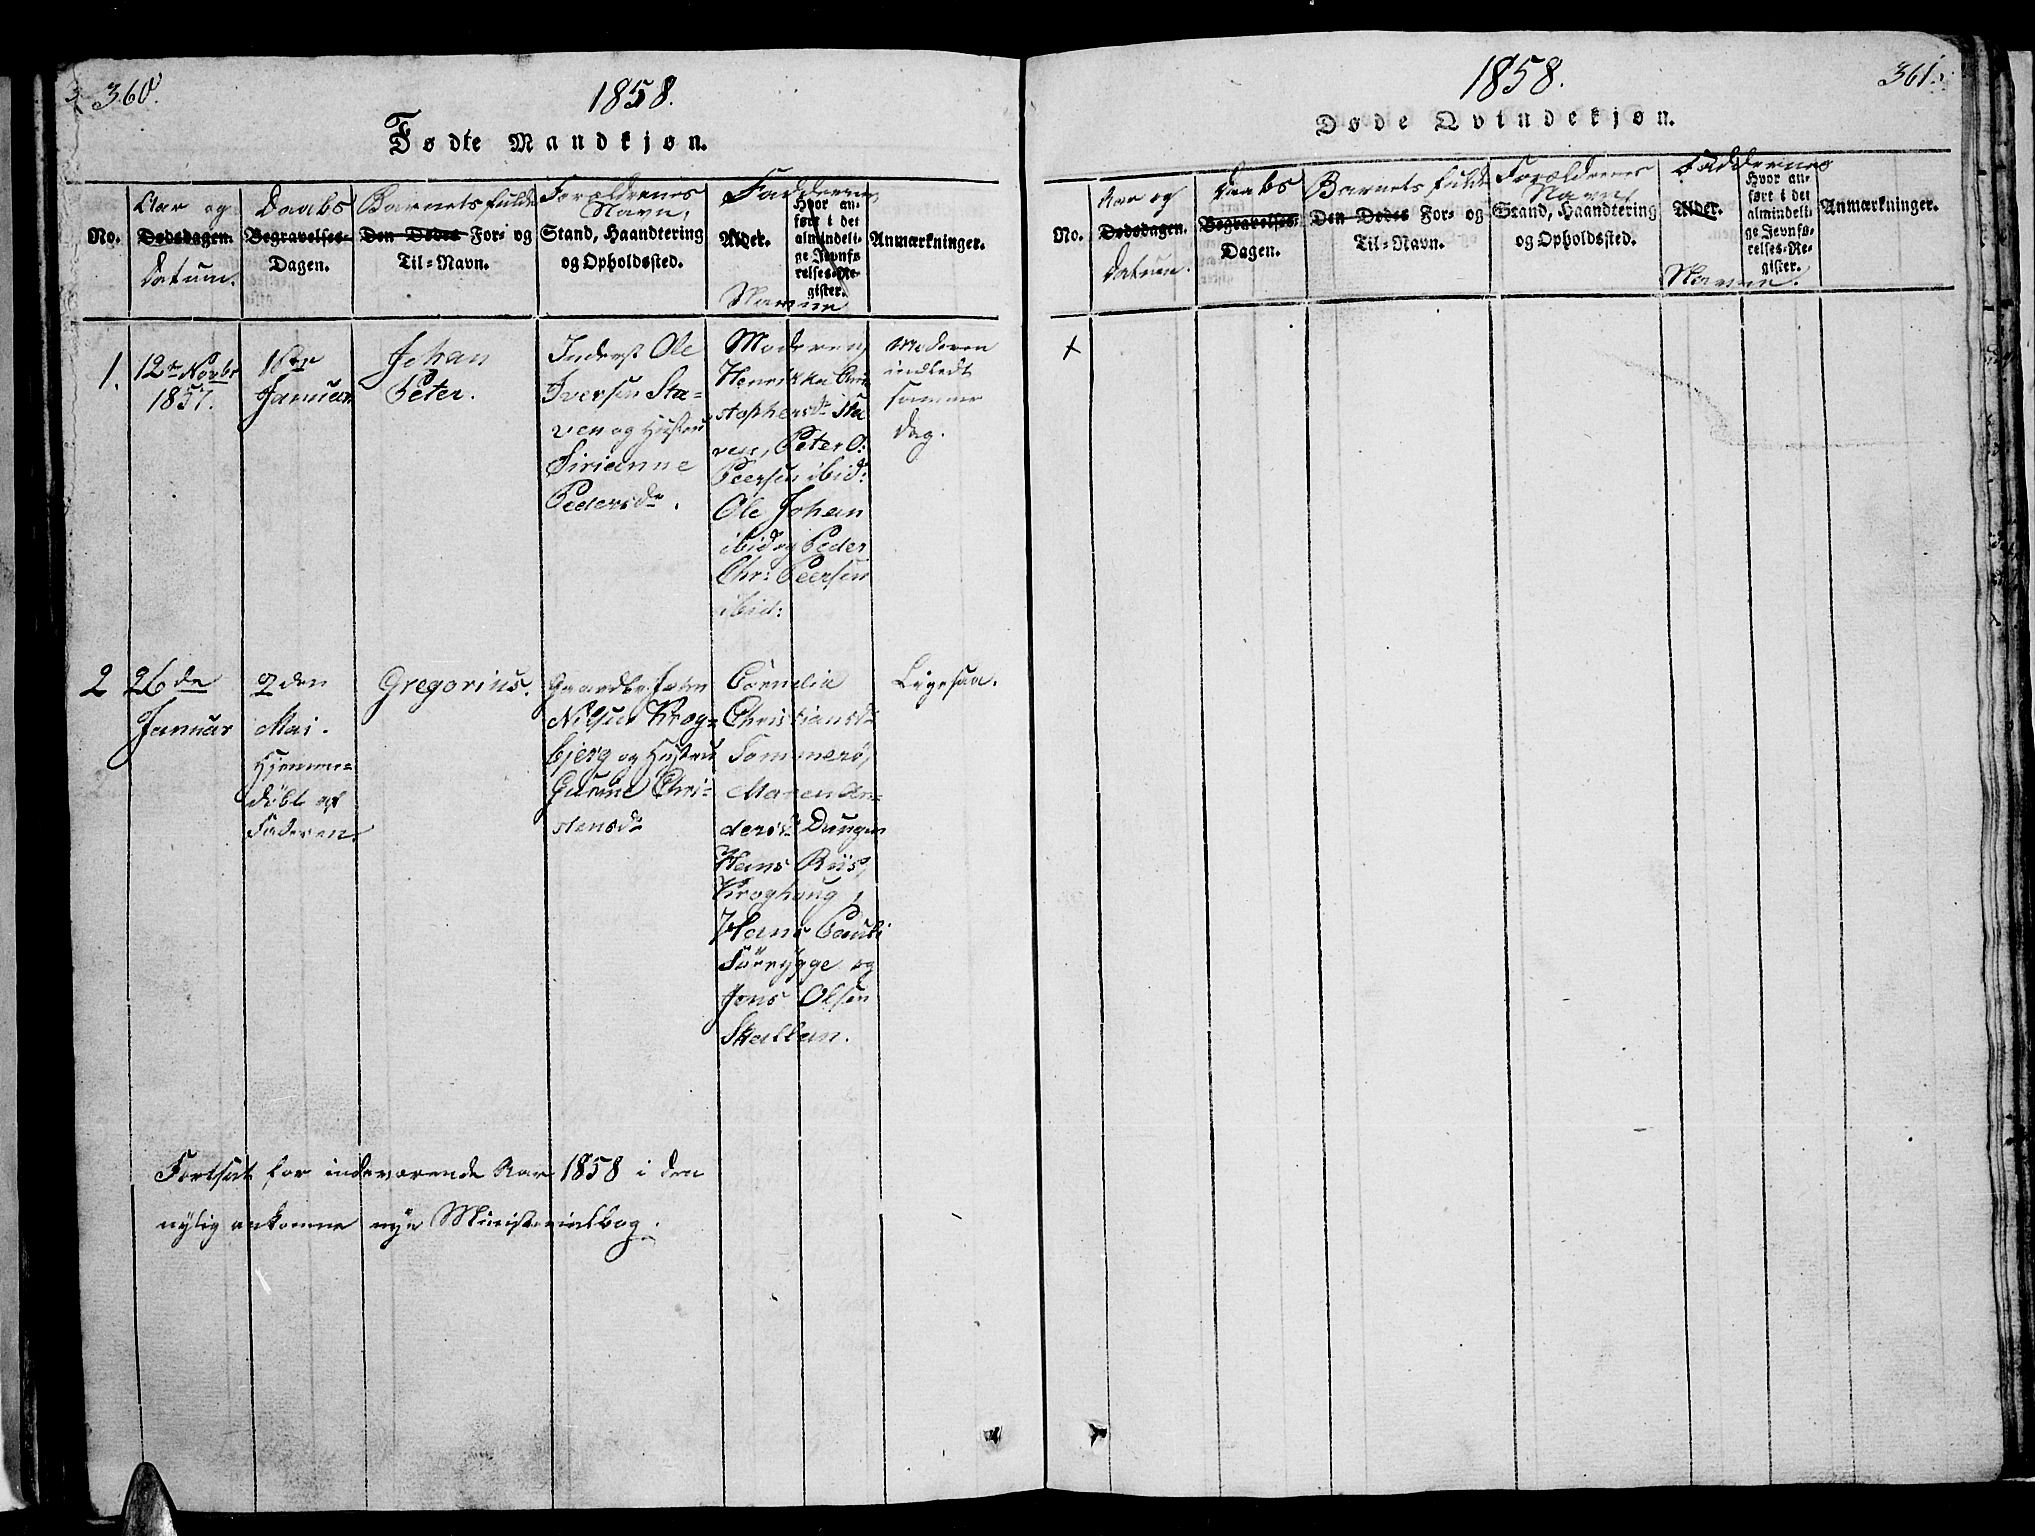 360.
1858.
Fødte Mandkjøn.
No.
Aar og
Dødsdagen.
Datum.
Daabs
Begravelses-
Dagen.
Barnets fulde
Den Dødes For- og
Til-Navn.
Forældrenes
Navn,
Stand, Haandtering
og Opholdssted.
Faddernes
Alder.
Navne
Hvor an-
ført i det
almindeli-
ge Jevnfø-
relses-Re-
gister.
Anmærkninger.
1.
12te Novbr
1857.
Januar
Johan
Peter.
Inderst Ole
Iversen Sta-
ven og Hustru
Sirianne
Pedersdr.
Moderen,
Henrikka Chri
stophersdr Sta
ven, Peter O:
Peersen ibid:
Ole Johan
ibid og Peder
Chr: Peersen
ibid:
Moderen
indledt
samme
Dag.
2
26de
Januar
den
Mai.
Hjemme-
døbt af
Faderen.
Gregorius.
Gaardbr. John
Nilsen Krog-
bjerg og Hustru
Gurine Chri-
stensdr
Cornelia
Christiansdr
Sommerø,
Maren An-
dersdr Dungen
Hans Riis,
Kroghaug,
Hans Pauli
Sörrygge og
Jens Olsen
Skallan.
Ligesaa.
Fortsat for indeværende Aar 1858 i den
nylig ankomne nye Ministerialbog.
1858.
361.
Døde Qvindekjøn.
No.
Aar og
Dødsdagen.
Datum.
Daabs
Begravelses-
Dagen.
Barnets fulde
Den Dødes For- og
Til-Navn.
Forældrenes
Navn,
Stand, Haandtering
og Opholdssted.
Faddernes
Alder.
Navne.
Hvor an-
ført i det
almindeli-
ge Jevnfø-
relses-Re-
gister.
Anmærkninger.
x